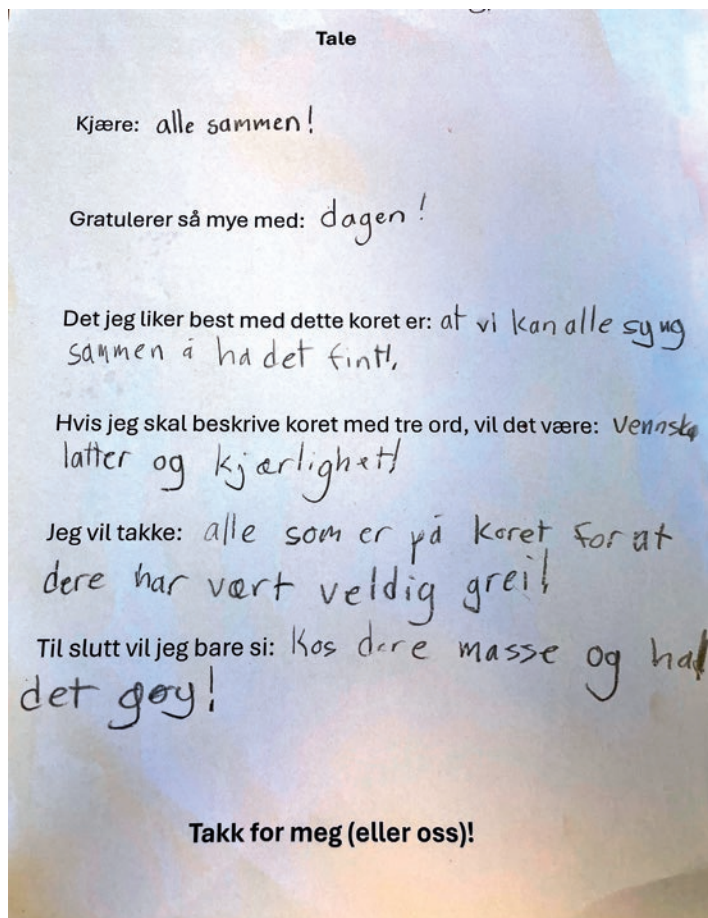 Tale
Kjære: alle sammen!
Gratulerer så mye med: dagen!
Det jeg liker best med dette koret er: at vi kan alle syng
sammen å ha det fint!
Hvis jeg skal beskrive koret med tre ord, vil det være: Vennsk
latter og kjærlighet!
Jeg vil takke: alle som er på koret for at
dere har vært veldig grei!
Til slutt vil jeg bare si: Kos dere masse og ha
det gøy!
Takk for meg (eller oss)!